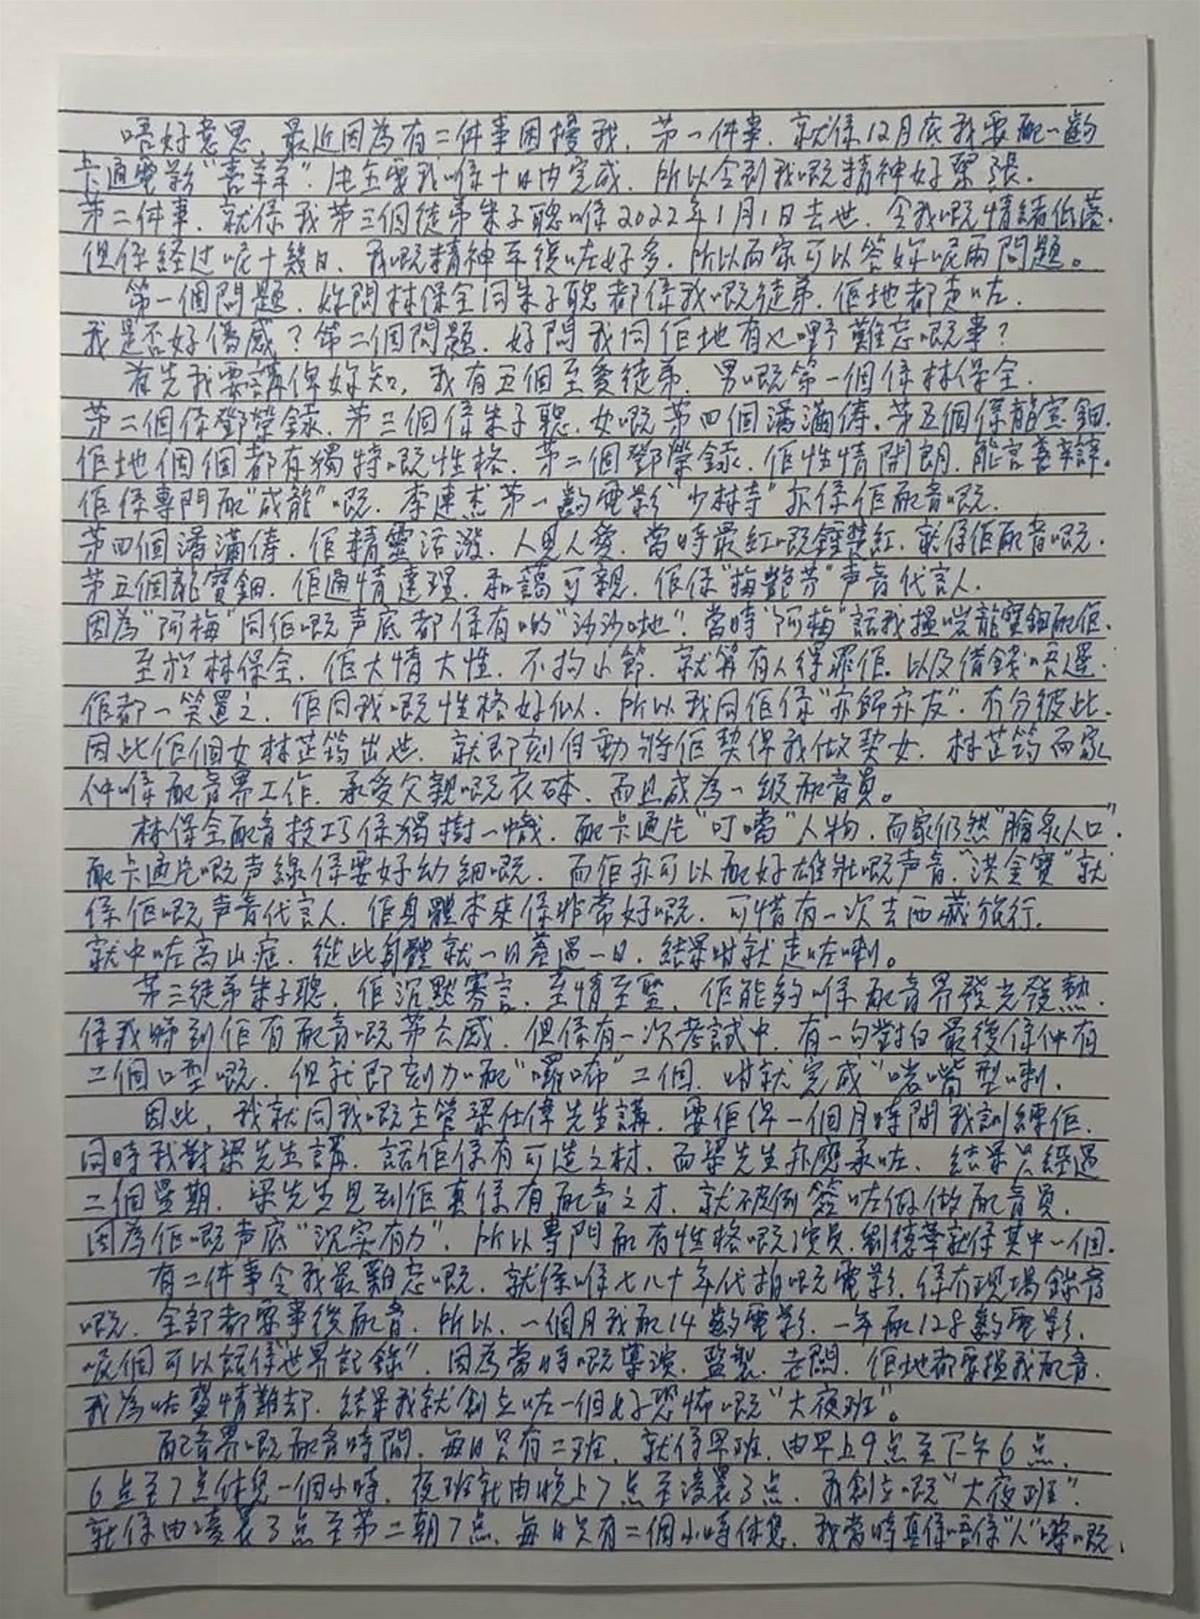 唔好意思，最近因為有二件事困擾我，第一件事，就係12月底我要配一齣
卡通電影"喜羊羊"，片主要我喺十日內完成，所以令到我嘅精神好緊張，
第二件事，就係我第三個徒弟朱子聰喺2022年1月1日去世，令我嘅情緒低落，
但係經过呢十幾日，我嘅精神平復咗好多，所以而家可以答妳呢兩問題。
第一個問題，妳問林保全同朱子聰都係我嘅徒弟，佢地都走咗，
我是否好傷感？第二個問題，妳問我同佢地有乜嘢難忘嘅事？
首先我要講俾妳知，我有五個至愛徒弟，男嘅第一個係林保全，
第二個係鄧榮銾，第三個係朱子聰，女嘅第四個潘滿儔，第五個係龍宝鈿，
佢地個個都有獨特嘅性格，第二個鄧榮銾，佢性情開朗，能言善辯。
佢係專門配"成龍"嘅，李連杰第一齣電影"少林寺"亦係佢配音嘅，
第四個潘滿儔，佢精靈活潑，人見人愛，當時最紅嘅鍾楚紅，就係佢配音嘅，
第五個龍寶鈿，佢通情達理，和藹可親，佢係"梅艷芳"声音代言人，
因為"阿梅"同佢嘅声底都係有啲"沙沙哋"，當時"阿梅"話我搵啱龍寶鈿配佢，
至於林保全，佢大情大性，不拘小節，就算有人得罪佢，以及借錢唔還，
佢都一笑置之，佢同我嘅性格好似，所以我同佢係"亦師亦友"，冇分彼此，
因此佢個女林芷筠出世，就即刻自動將佢契俾我做契女，林芷筠而家
仲喺配音界工作，承受父親嘅衣砵，而且成為一級配音員。
林保全配音技巧係獨樹一幟，配卡通片"叮噹"人物，而家仍然"膾炙人口"，
配卡通片嘅声線係要好幼細嘅，而佢亦可以配好雄壯嘅声音，"洪金寶"就
係佢嘅声音代言人，佢身體本來係非常好嘅，可惜有一次去西藏旅行，
就中咗高山症，從此身體就一日差過一日，結果咁就走咗喇。
第三徒弟朱子聰，佢沉默寡言，至情至聖，佢能夠喺配音界發光發熱，
係我睇到佢有配音嘅第六感，但係有一次考試中，有一句對白最後係仲有
二個口型嘅，但就即刻加配"囉唏"二個，咁就完成"啱嘴型"喇，
因此，我就同我嘅主管梁仕偉先生講，要佢俾一個月時間我訓練佢，
同時我對梁先生講，話佢係有可造之材，而梁先生亦應承咗，結果只經過
二個星期，梁先生見到佢真係有配音之才，就破例簽咗佢做配音員，
因為佢嘅声底"沉实有力"，所以專門配有性格嘅演員，劉德華就係其中一個，
有二件事令我最難忘嘅，就係喺七八十年代拍嘅電影，係冇現場錄音
嘅，全部都要事後配音，所以，一個月我配14齣電影，一年配128齣電影，
呢個可以話係"世界記錄"，因為當時嘅導演，監製，老闆，佢地都要搵我配音，
我為咗盛情難却，結果我就創立咗一個好恐怖嘅"大夜班"。
配音界嘅配音時間，每日只有二班，就係早班，由早上9点至下午6点，
6点至7点休息一個小時，夜班就由晚上7点至淩晨3点，我創立嘅"大夜班"，
就係由淩晨3点至第二朝7点，每日只有二個小時休息，我當時真係唔係"人"嚟嘅，